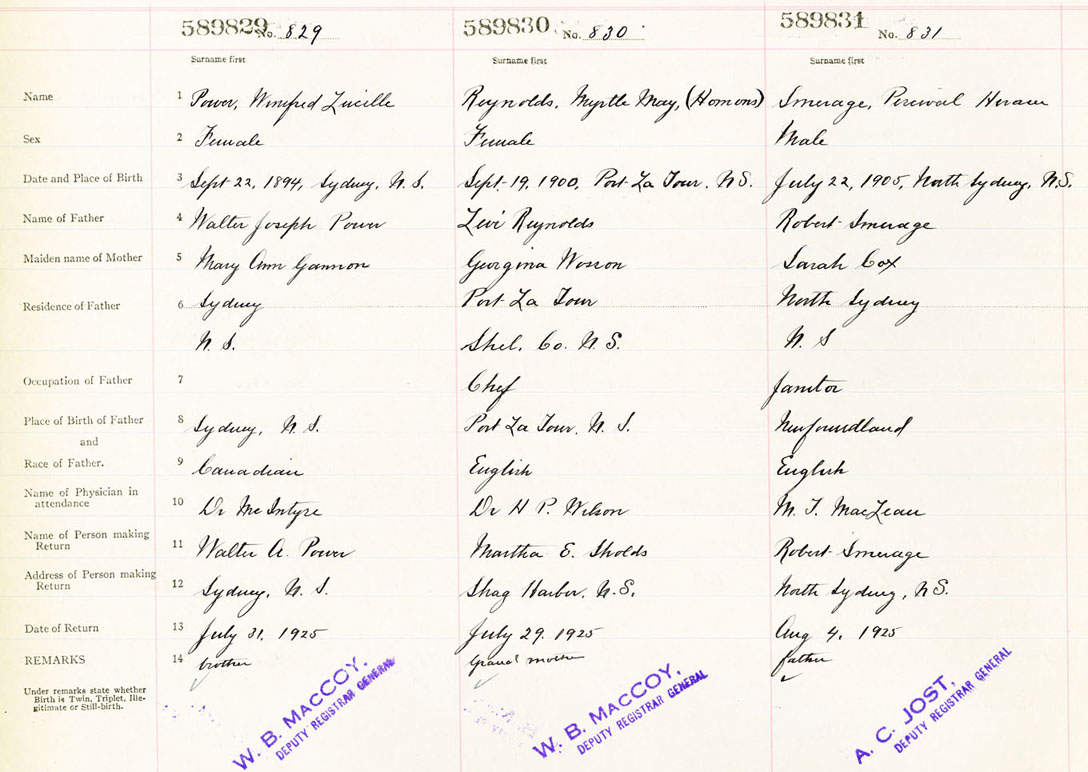 589829 No. 829 589830 No. 830 589831 No. 831
Surname first Surname first Surname first
Name 1 Power, Winifred Lucille Reynolds, Myrtle May, (Homons) Smerage, Percival Hiram
Sex 2 Female Female Male
Date and Place of Birth 3 Sept 22, 1894, Sydney, N.S. Sept. 19, 1900, Port La Tour, N.S. July 22, 1905, North Sydney, N.S.
Name of Father 4 Walter Joseph Power Levi Reynolds Robert Smerage
Maiden name of Mother 5 Mary Ann Gannon Georgina Sarah Cox
Residence of Father 6 Sydney Port La Tour North Sydney
N.S. Shel. Co. N.S. N.S
Occupation of Father 7 Chef Janitor
Place of Birth of Father 8 Sydney, N.S. Port La Tour, N.S. Newfoundland
and
Race of Father. 9 Canadian English English
Name of Physician in
attendance 10 Dr McIntyre Dr H P. Wilson M. T. MacLean
Name of Person making
Return 11 Walter A. Power Martha E. Robert Smerage
Address of Person making
Return 12 Sydney, N.S. Shag Harbor, N.S. North Sydney, NS.
Date of Return 13 July 31, 1925 July 29, 1925 Aug 4, 1925
REMARKS 14 brother Grand mother father
Under remarks state whether
Birth is Twin, Triplet, Ille-
gitimate or Still-birth.
W. B. MACCOY, W. B. MACCOY, A. C. JOST,
DEPUTY REGISTRAR GENERAL DEPUTY REGISTRAR GENERAL DEPUTY REGISTRAR GENERAL